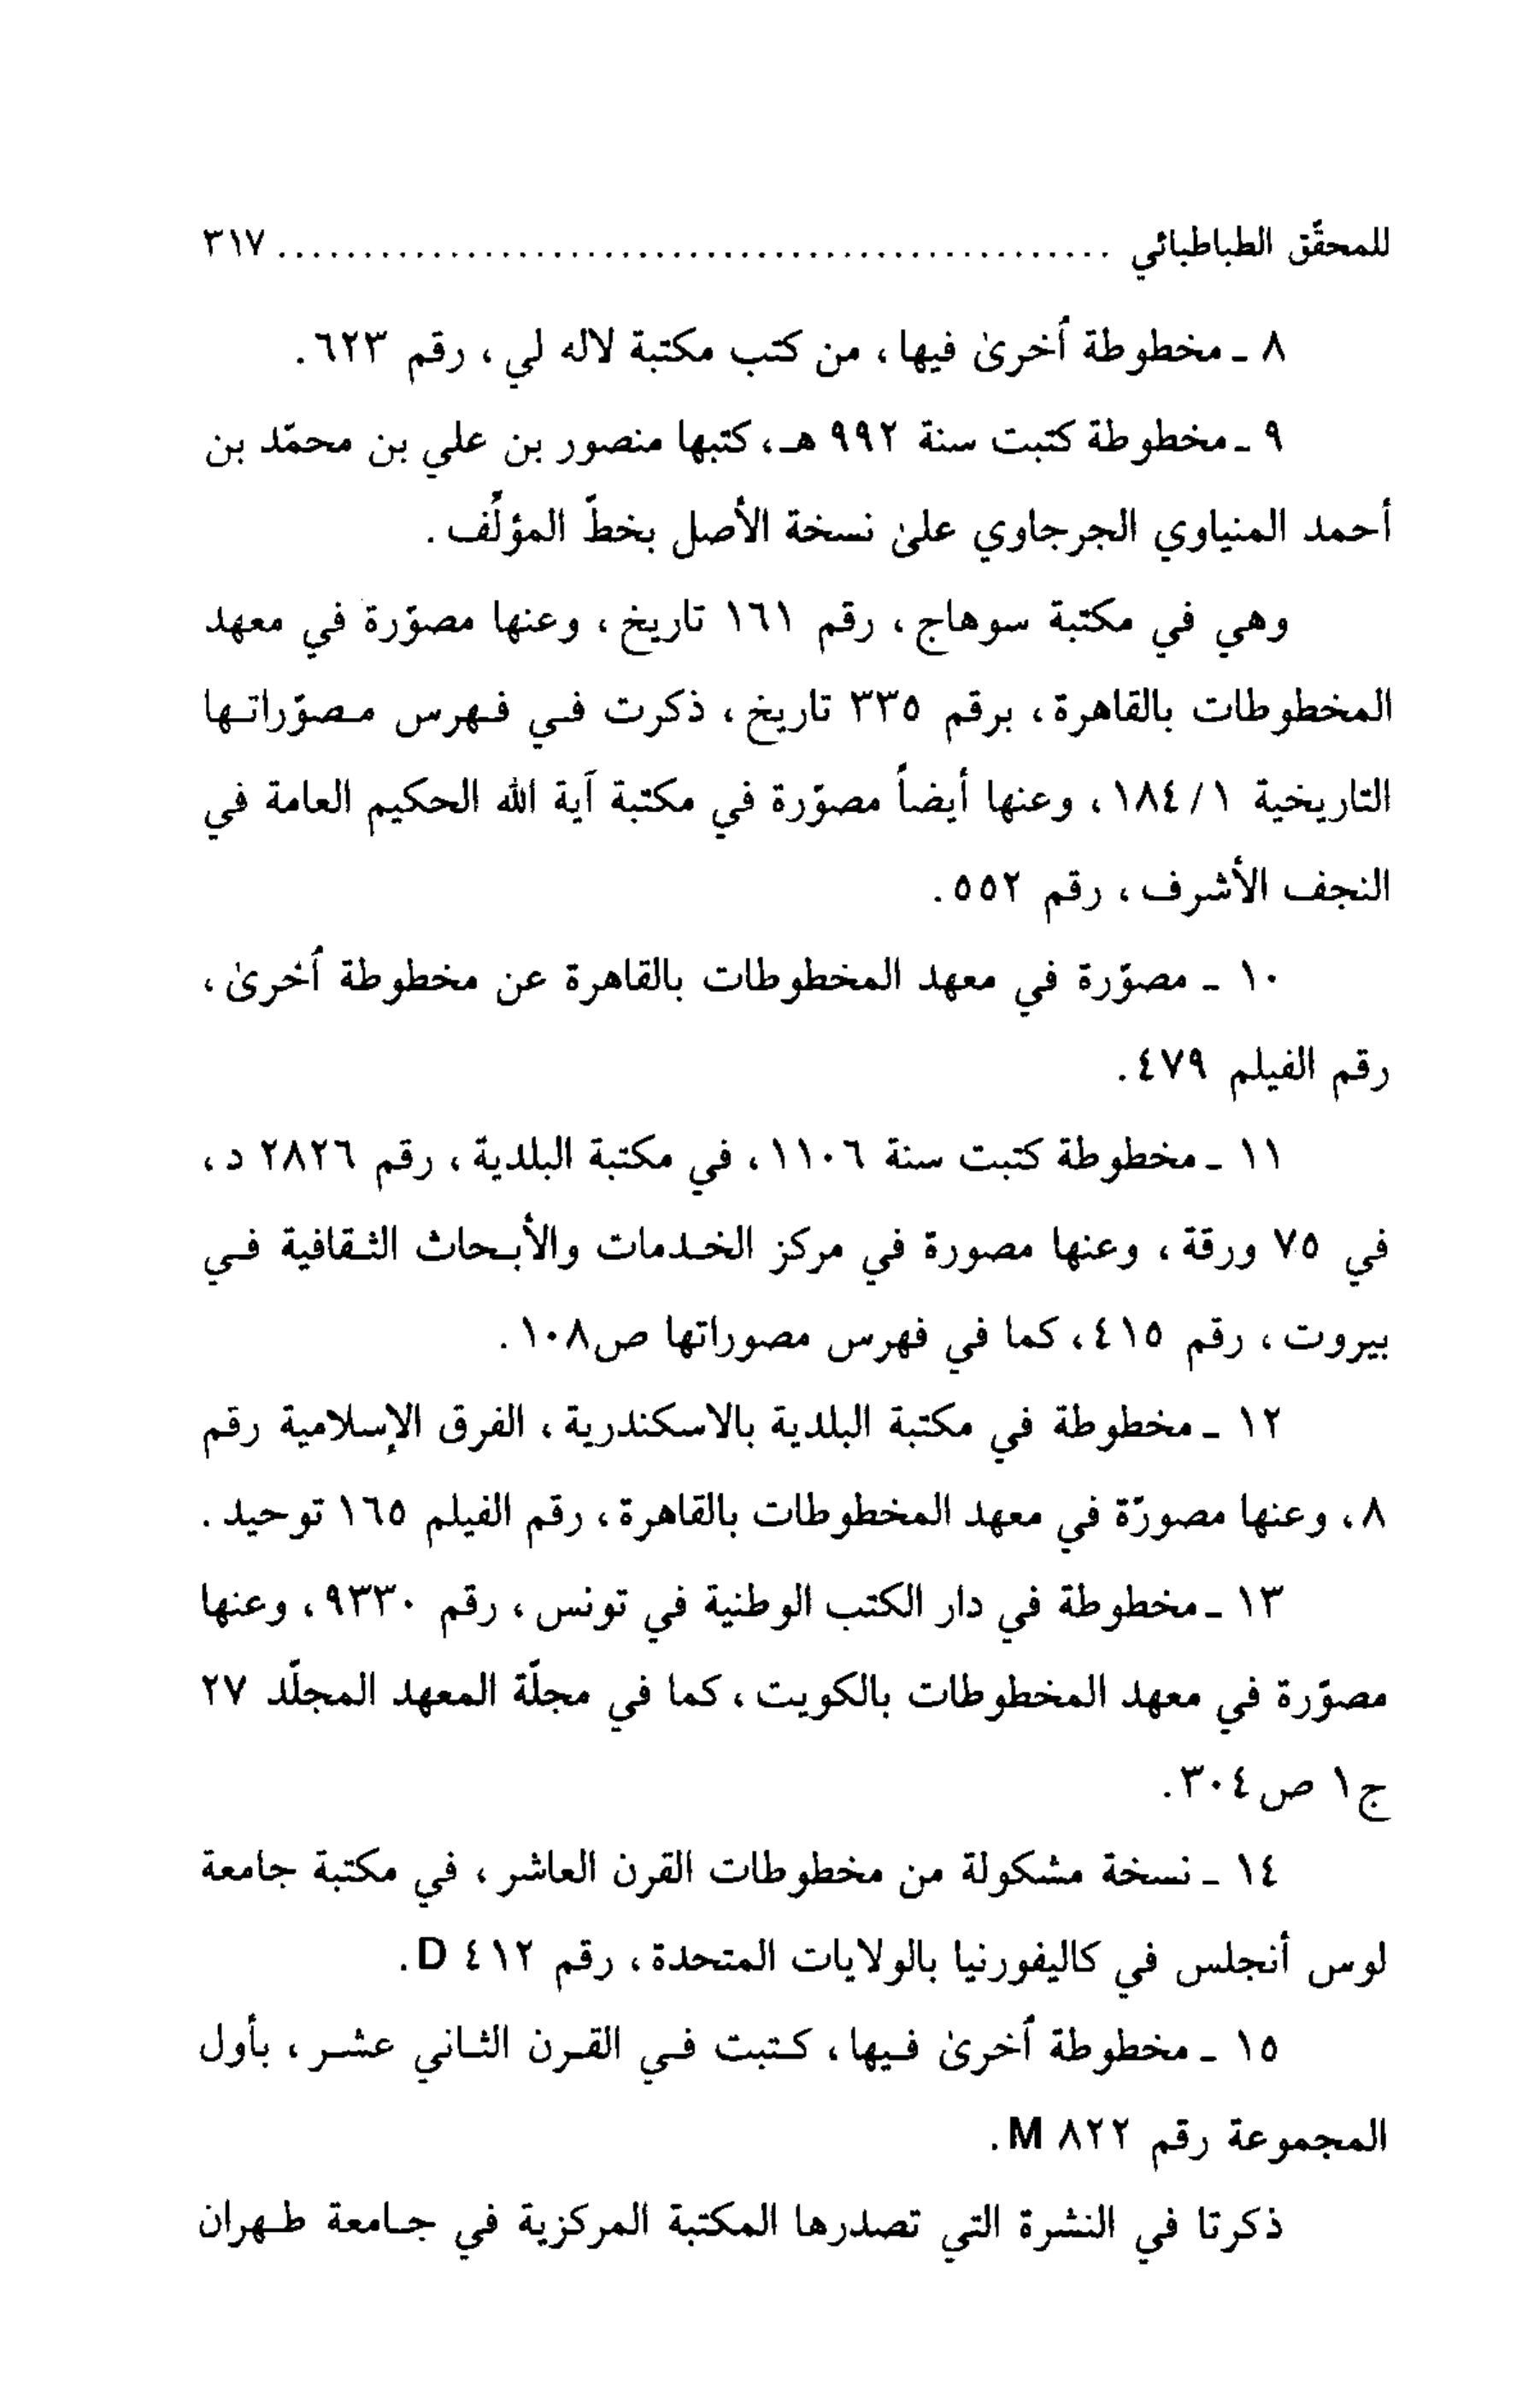 للمحقّق الطباطبائي ................................................ ٣١٧
٨ ـ مخطوطة أُخرىٰ فيها ، من كتب مكتبة لاله لي ، رقم ٦٢٣ .
٩ ـ مخطوطة كتبت سنة ٩٩٢ هـ ، كتبها منصور بن علي بن محمّد بن
أحمد المنياوي الجرجاوي علىٰ نسخة الأصل بخطّ المؤلّف .
وهي في مكتبة سوهاج ، رقم ١٦١ تاريخ ، وعنها مصوّرة في معهد
المخطوطات بالقاهرة ، برقم ٣٣٥ تاريخ ، ذكرت في فهرس مصوّراتها
التاريخية ١ / ١٨٤ ، وعنها أيضاً مصوّرة في مكتبة آية الله الحكيم العامة في
النجف الأشرف ، رقم ٥٥٢ .
١٠ ـ مصوّرة في معهد المخطوطات بالقاهرة عن مخطوطة أُخرىٰ ،
رقم الفيلم ٤٧٩ .
١١ ـ مخطوطة كتبت سنة ١١٠٦ ، في مكتبة البلدية ، رقم ٢٨٢٦ د ،
في ٧٥ ورقة ، وعنها مصورة في مركز الخدمات والأبحاث الثقافية في
بيروت ، رقم ٤١٥ ، كما في فهرس مصوراتها ص١٠٨ .
١٢ ـ مخطوطة في مكتبة البلدية بالاسكندرية ، الفرق الإسلامية رقم
٨ ، وعنها مصورّة في معهد المخطوطات بالقاهرة ، رقم الفيلم ١٦٥ توحيد .
١٣ ـ مخطوطة في دار الكتب الوطنية في تونس ، رقم ٩٣٣٠ ، وعنها
مصوّرة في معهد المخطوطات بالكويت ، كما في مجلّة المعهد المجلّد ٢٧
ج١ ص٣٠٤ .
١٤ ـ نسخة مشكولة من مخطوطات القرن العاشر ، في مكتبة جامعة
لوس أنجلس في كاليفورنيا بالولايات المتحدة ، رقم ٤١٢ D .
١٥ ـ مخطوطة أُخرىٰ فيها ، كتبت في القرن الثاني عشر ، بأول
المجموعة رقم ٨٢٢ M .
ذكرتا في النشرة التي تصدرها المكتبة المركزية في جامعة طهران